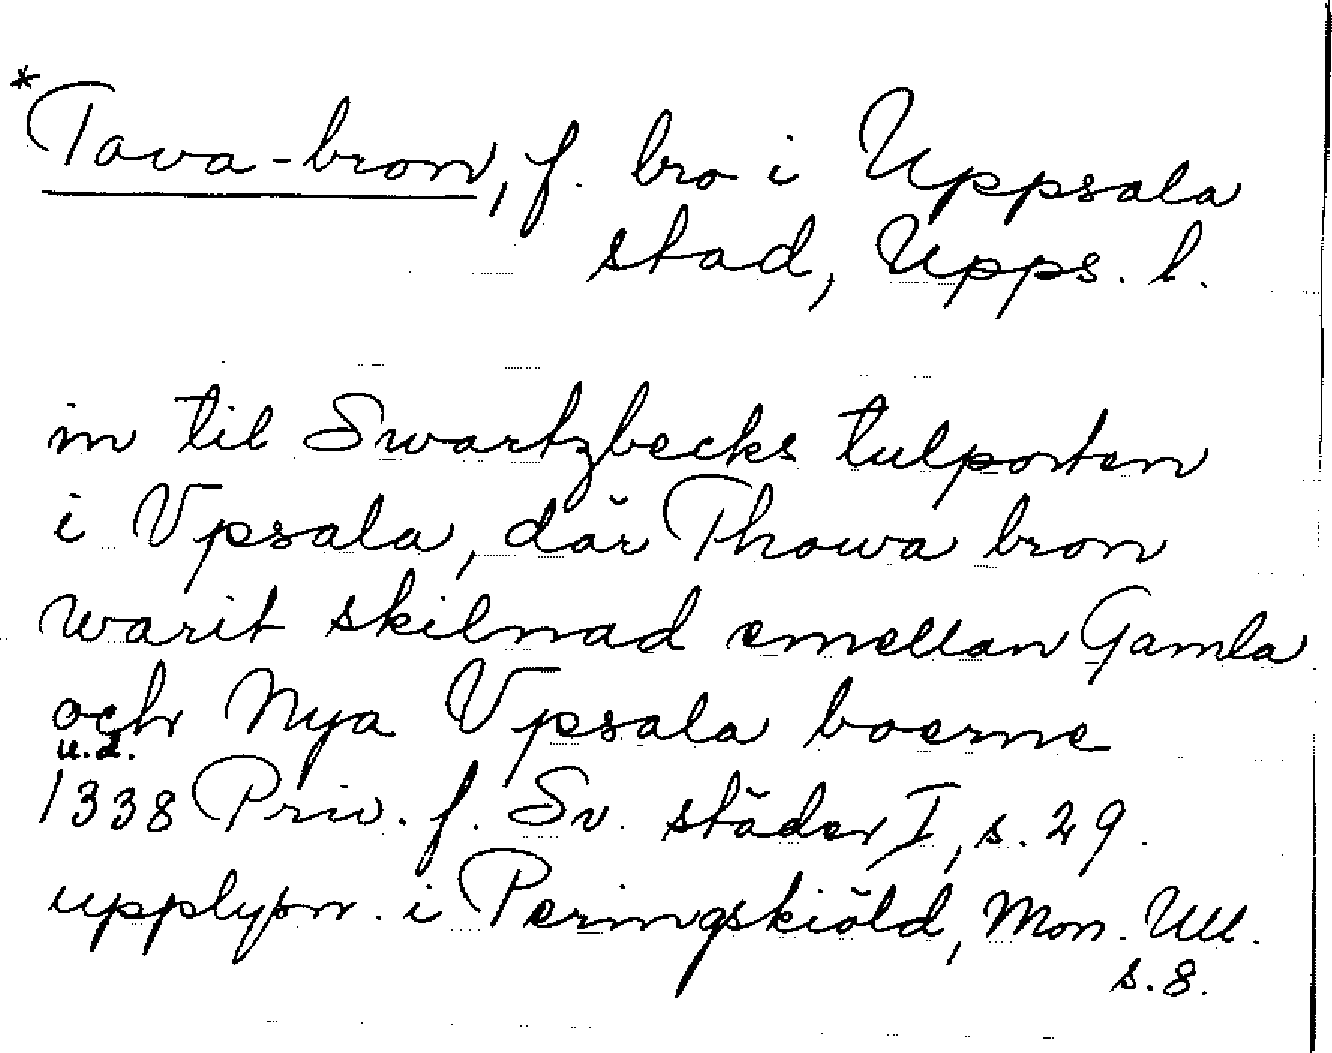 *Tava-bron, f. bro i Uppsala
stad, Upps. l.
in til Swartzbecks tulporten
i Vpsala, där Thowa bron
warit skilnad emellan Gamla
och Nya Vpsala boerne
u.d.
1338 Priv. f. Sv. städer I, s. 29.
upplysn. i Peringskiöld, Mon. Ull.
s. 8.